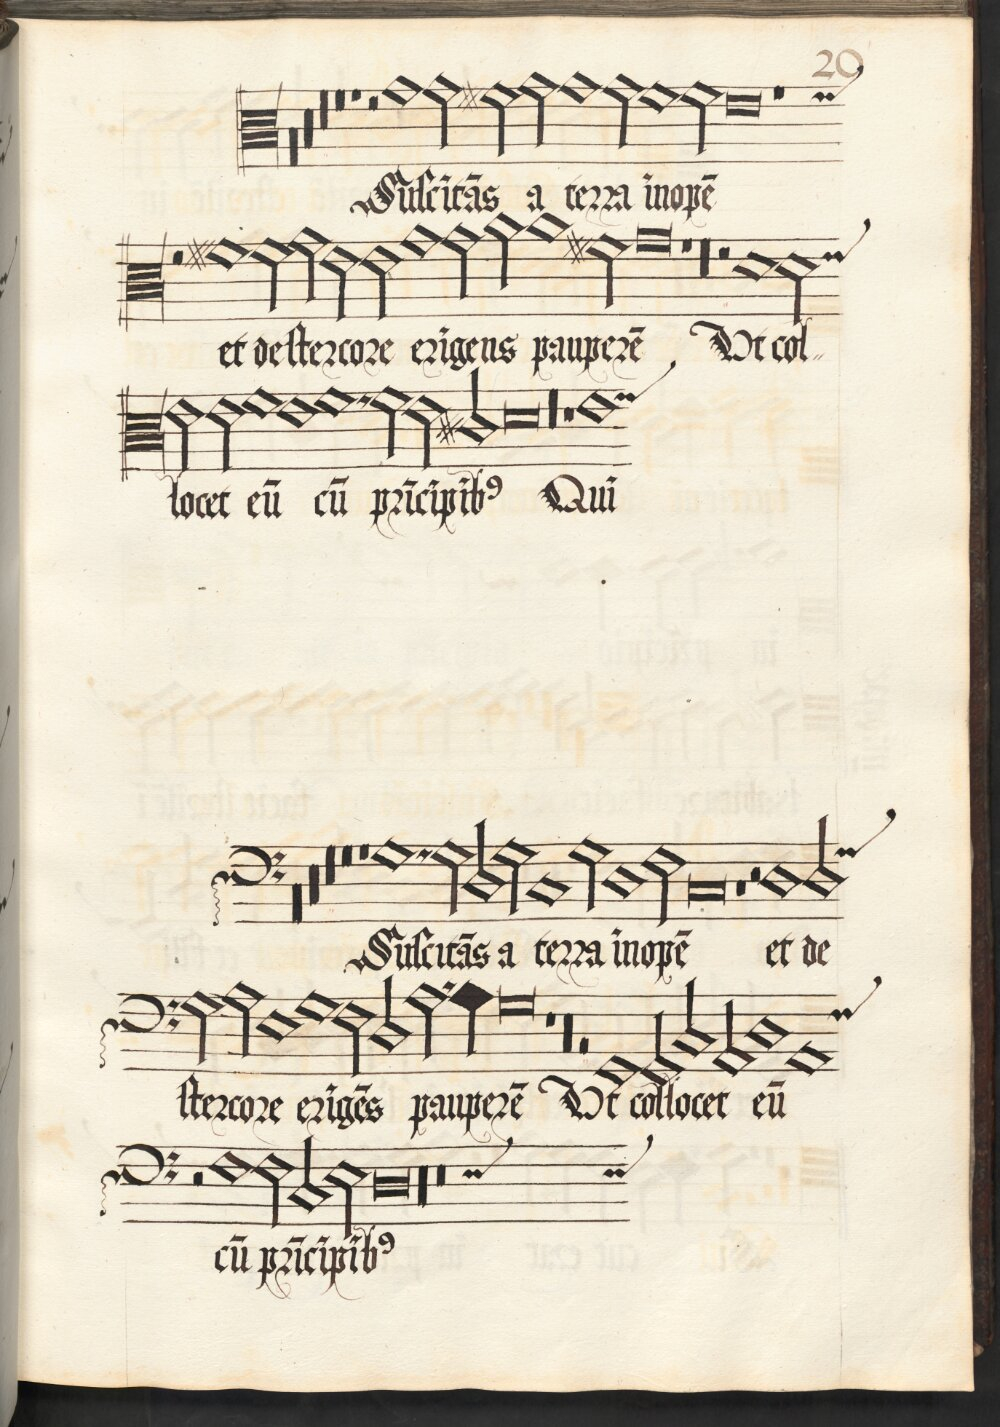 20
Suscitās a terra inopē
et de stercore erigens pauperē Vt col„
locet eū cū prīcipib⁹ Qui
Suscitās a terra inopē et de
stercore erigēs pauperē Vt collocet eū
cū prīcipib⁹